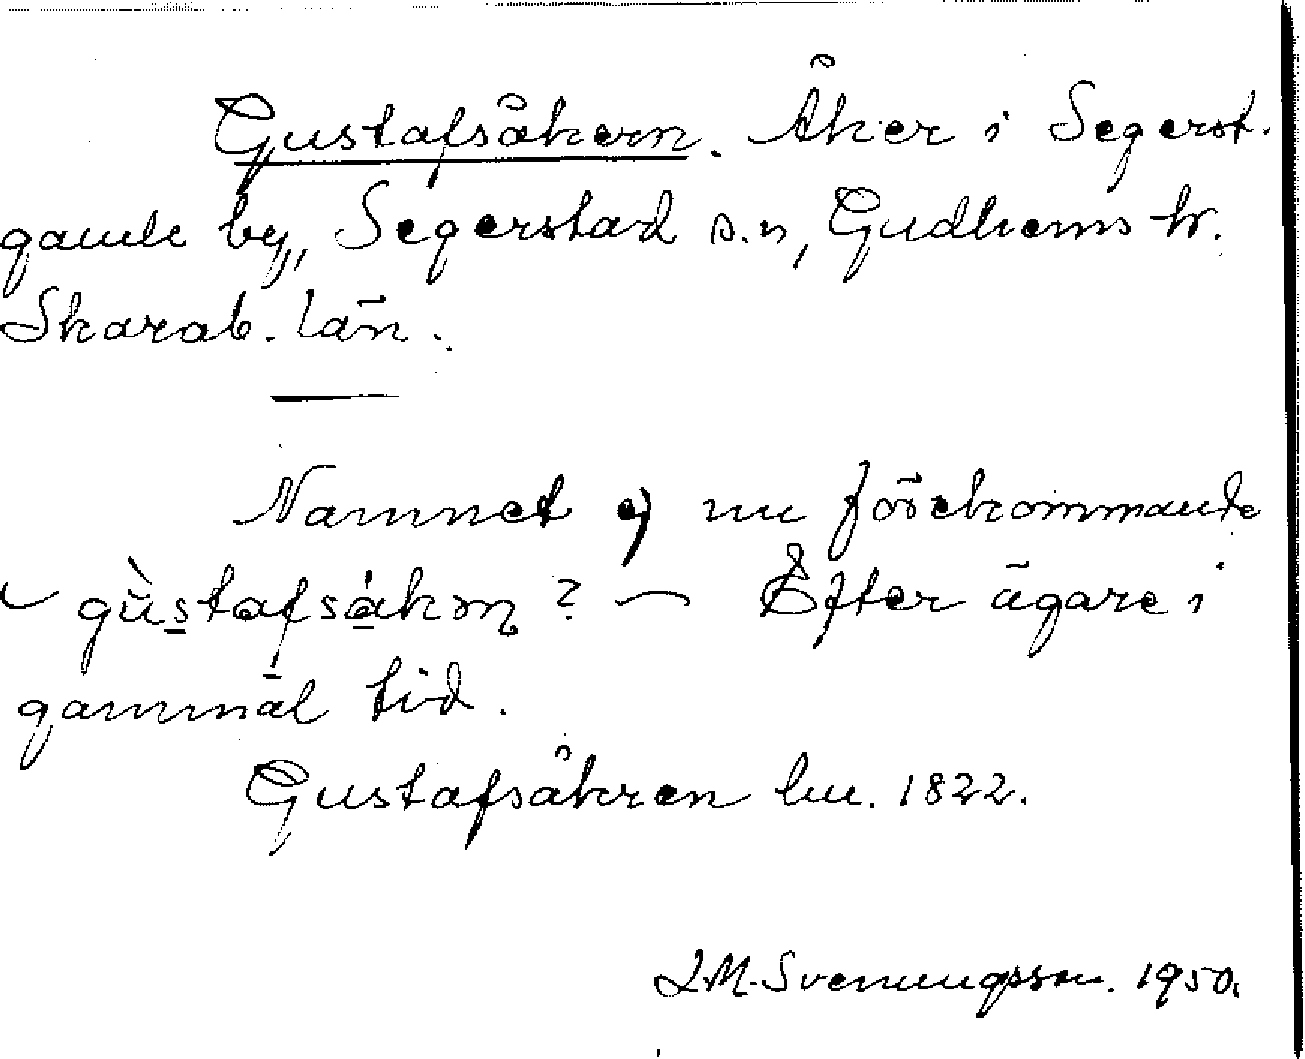 Gustafsåkern. Åker i Segerst.
gamle by, Segerstad s.n, Gudhems hr.
Skarab. län.
Namnet ej nu förekommande
gùstafsåkɷn? — Efter ägare i
gammal tid.
Gustafsåkren hu. 1822.
J.M. Svenungsson. 1950.